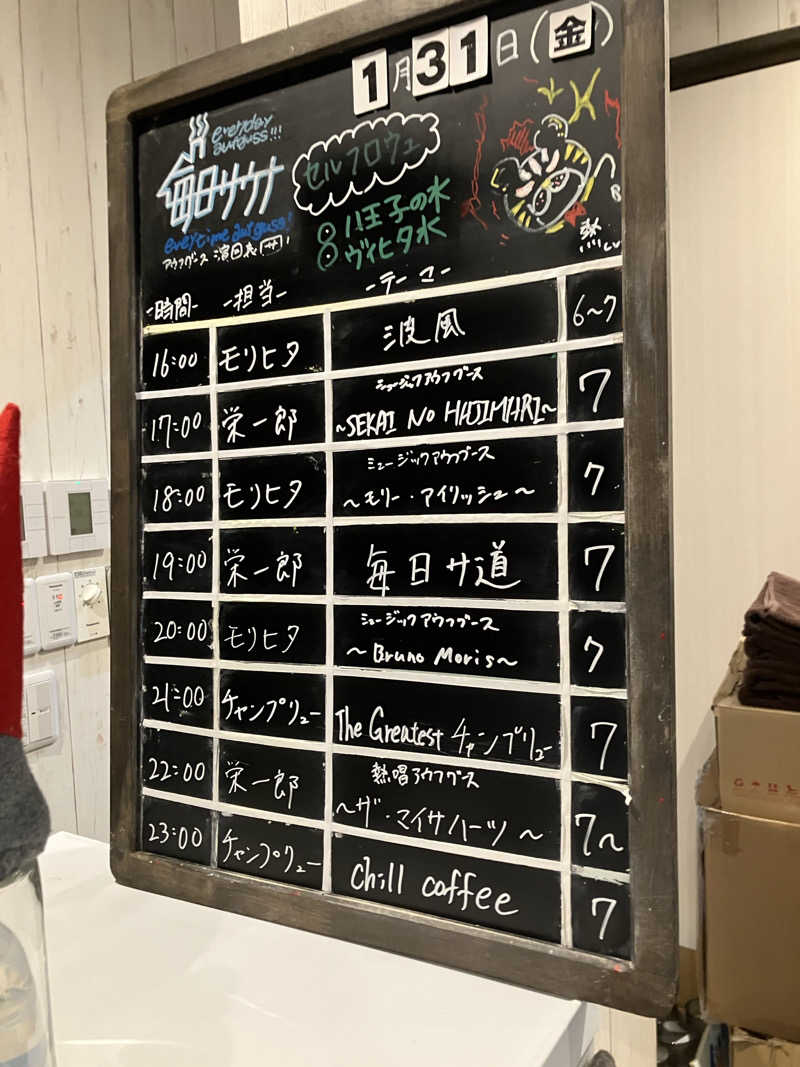 1月31日(金)
everyday
aufguss!!!
毎日サウナ
everytime aufguss!
アウフグース 演目表(サ)!
セルフロウュ
8 八王子の水
8 ヴィヒタ水
-時間- -担当- -テーマ- 熱
16:00 モリヒタ 波風 6~7
17:00 栄一郎 ミュージックアウフグース ~SEKAI NO HAJIMARI~ 7
18:00 モリヒタ ミュージックアウフグース ~モリー・アイリッシュ~ 7
19:00 栄一郎 毎日サ道 7
20:00 モリヒタ ミュージックアウフグース ~Bruno Moris~ 7
21:00 チャンプリュー The Greatest チャンプリュー 7
22:00 栄一郎 熱唱アウフグース ~ザ・マイサハーツ~ 7~
23:00 チャンプリュー chill coffee 7